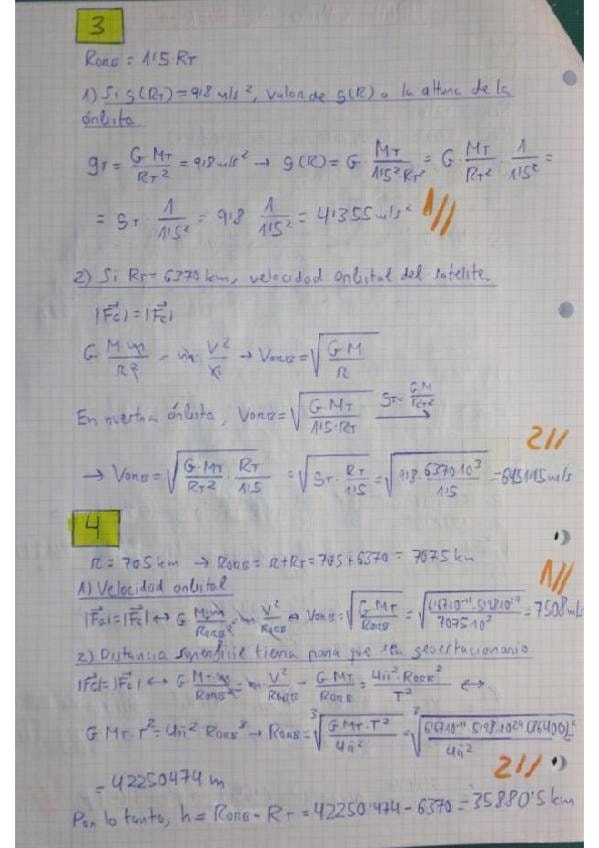 3
RORB = 1'5·RT
1) Si g(RT)=9'8 m/s², valor de g(R) a la altura de la
órbita
gT = G·MT/RT² = 9'8 m/s² → g(R) = G · MT/1'5²RT² = G MT/RT² · 1/1'5² =
= gT · 1/1'5² = 9'8 1/1'5² = 4'355 m/s²
2) Si RT = 6370 km, velocidad orbital del satélite.
|Fc| = |Fc|
G M·m/R² = m V²/R → VORB = √(G·M/R)
En nuestra órbita, VORB = √(G·MT/1'5·RT) gT = GM/RT² →
→ VORB = √(G·MT/RT² · RT/1'5) = √(gT · RT/1'5) = √(9'8·6370·10³/1'5) = 6451'15 m/s
2
4
h = 705 km → RORB = h + RT = 705 + 6370 = 7075 km
1) Velocidad orbital
|FG| = |Fc| ↔ G M·m/RORB² = m V²/RORB ↔ VORB = √(G·MT/RORB) = √(6'67·10⁻¹¹·5'98·10²⁴/7075·10³) = 7508 m/
2) Distancia superficie tierra para que sea geoestacionario
|FG| = |Fc| ↔ G M·m/RORB² = m V²/RORB - G MT/RORB = 4π²·RORB²/T² ↔
G·MT·T² = 4π² RORB³ → RORB = ³√(G·MT·T²/4π²) = ³√(6'67·10⁻¹¹·5'98·10²⁴·(86400)²/4π²)
= 42250474 m
2
Por lo tanto, h = RORB - RT = 42250'474 - 6370 = 35880'5 km